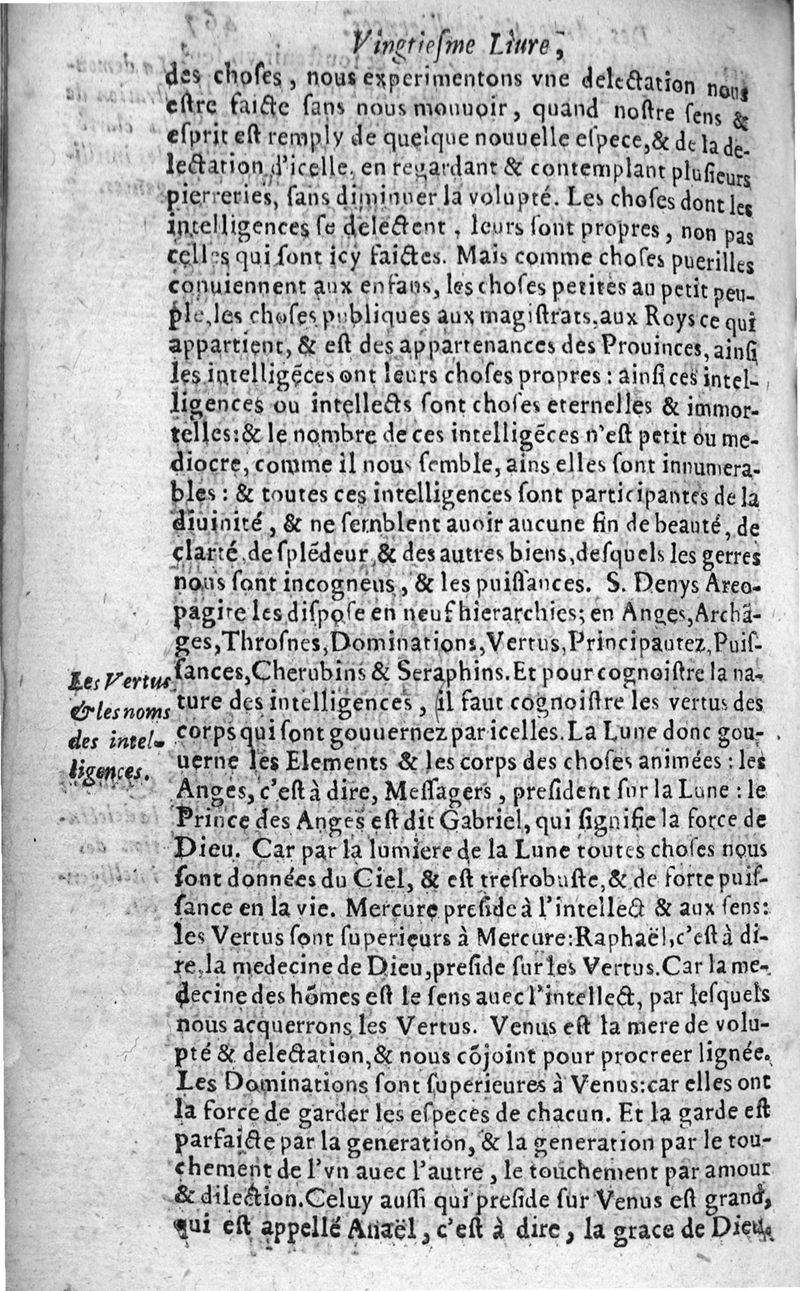 Vingtiesme Liure,
des choses, nous experimentons vne delectation nous
estre faicte sans nous mouuoir, quand nostre sens &
esprit est remply de quelque nouuelle espece, & de la de-
lectation d'icelle, en regardant & contemplant plusieurs
pierreries, sans diminuer la volupté. Les choses dont les
intelligences se delectent, leurs sont propres, non pas
celles qui sont icy faictes. Mais comme choses puerilles
conuiennent aux enfans, les choses petites au petit peu-
ple, les choses publiques aux magistrats, aux Roys ce qui
appartient, & est des appartenances des Prouinces, ainsi
les intelligēces ont leurs choses propres: ainsi ces intel-
ligences ou intellects sont choses eternelles & immor-
telles: & le nombre de ces intelligēces n'est petit ou me-
diocre, comme il nous semble, ains elles sont innumera-
bles: & toutes ces intelligences sont participantes de la
diuinité, & ne semblent auoir aucune fin de beauté, de
clarté, de splēdeur, & des autres biens, desquels les gerres
nous sont incogneus, & les puissances. S. Denys Areo-
pagite les dispose en neuf hierarchies; en Anges, Archā-
ges, Throsnes, Dominations, Vertus, Principautez, Puis-
sances, Cherubins & Seraphins. Et pour cognoistre la na-
ture des intelligences, il faut cognoistre les vertus des
corps qui sont gouuernez par icelles. La Lune donc gou-
uerne les Elements & les corps des choses animées: les
Anges, c'est à dire, Messagers, president sur la Lune: le
Prince des Anges est dit Gabriel, qui signifie la force de
Dieu. Car par la lumiere de la Lune toutes choses nous
sont données du Ciel, & est tresrobuste, & de forte puis-
sance en la vie. Mercure preside à l'intellect & aux sens:
les Vertus sont superieurs à Mercure: Raphaël, c'est à di-
re, la medecine de Dieu, preside sur les Vertus. Car la me-
decine des hōmes est le sens auec l'intellect, par lesquels
nous acquerrons les Vertus. Venus est la mere de volu-
pté & delectation, & nous cōjoint pour procreer lignée.
Les Dominations sont superieures à Venus: car elles ont
la force de garder les especes de chacun. Et la garde est
parfaicte par la generation, & la generation par le tou-
chement de l'vn auec l'autre, le touchement par amour
& dilection. Celuy aussi qui preside sur Venus est grand,
qui est appellé Anaël, c'est à dire, la grace de Dieu.
Les Vertus
& les noms
des intel-
ligences.